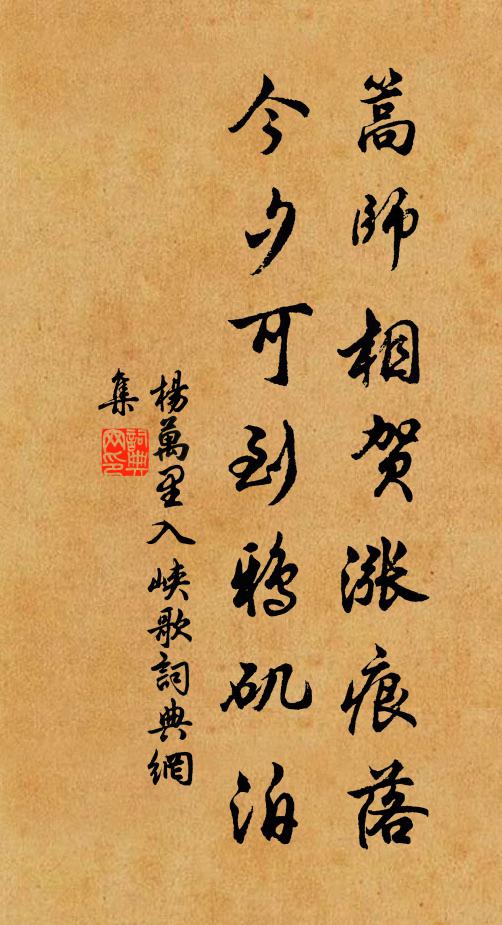 篙師相贺漲痕落
今夕可到鴉矶泊
楊萬里入峡歌詞典網
集
詞典
网印